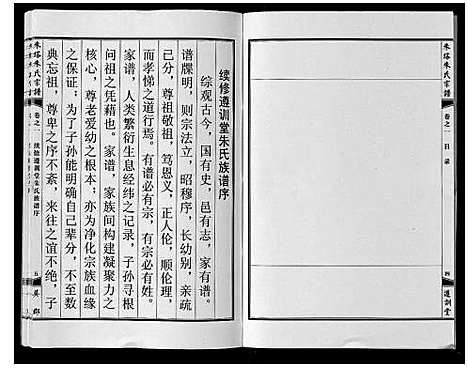 朱塔朱氏宗譜
卷之一
目录
四
遵訓堂
续修遵训堂朱氏族谱序
综观古今，国有史，邑有志，家有谱。
谱牒明，则宗法立，昭穆序，长幼别，亲疏
已分，尊祖敬祖，笃恩义，正人伦，顺伦理，
而孝悌之道行焉。有谱必有宗，有宗必有姓。
家谱，人类繁衍生息经纬之记录，子孙寻根
问祖之凭藉也。家谱，家族间构建凝聚力之
核心，尊老爱幼之根本；亦为净化宗族血缘
之保证；为了子孙能明确自己辈分，不至数
典忘祖，尊卑之序不紊，来往之谊不绝，子
卷之一
续修遵训堂朱氏族谱序
五